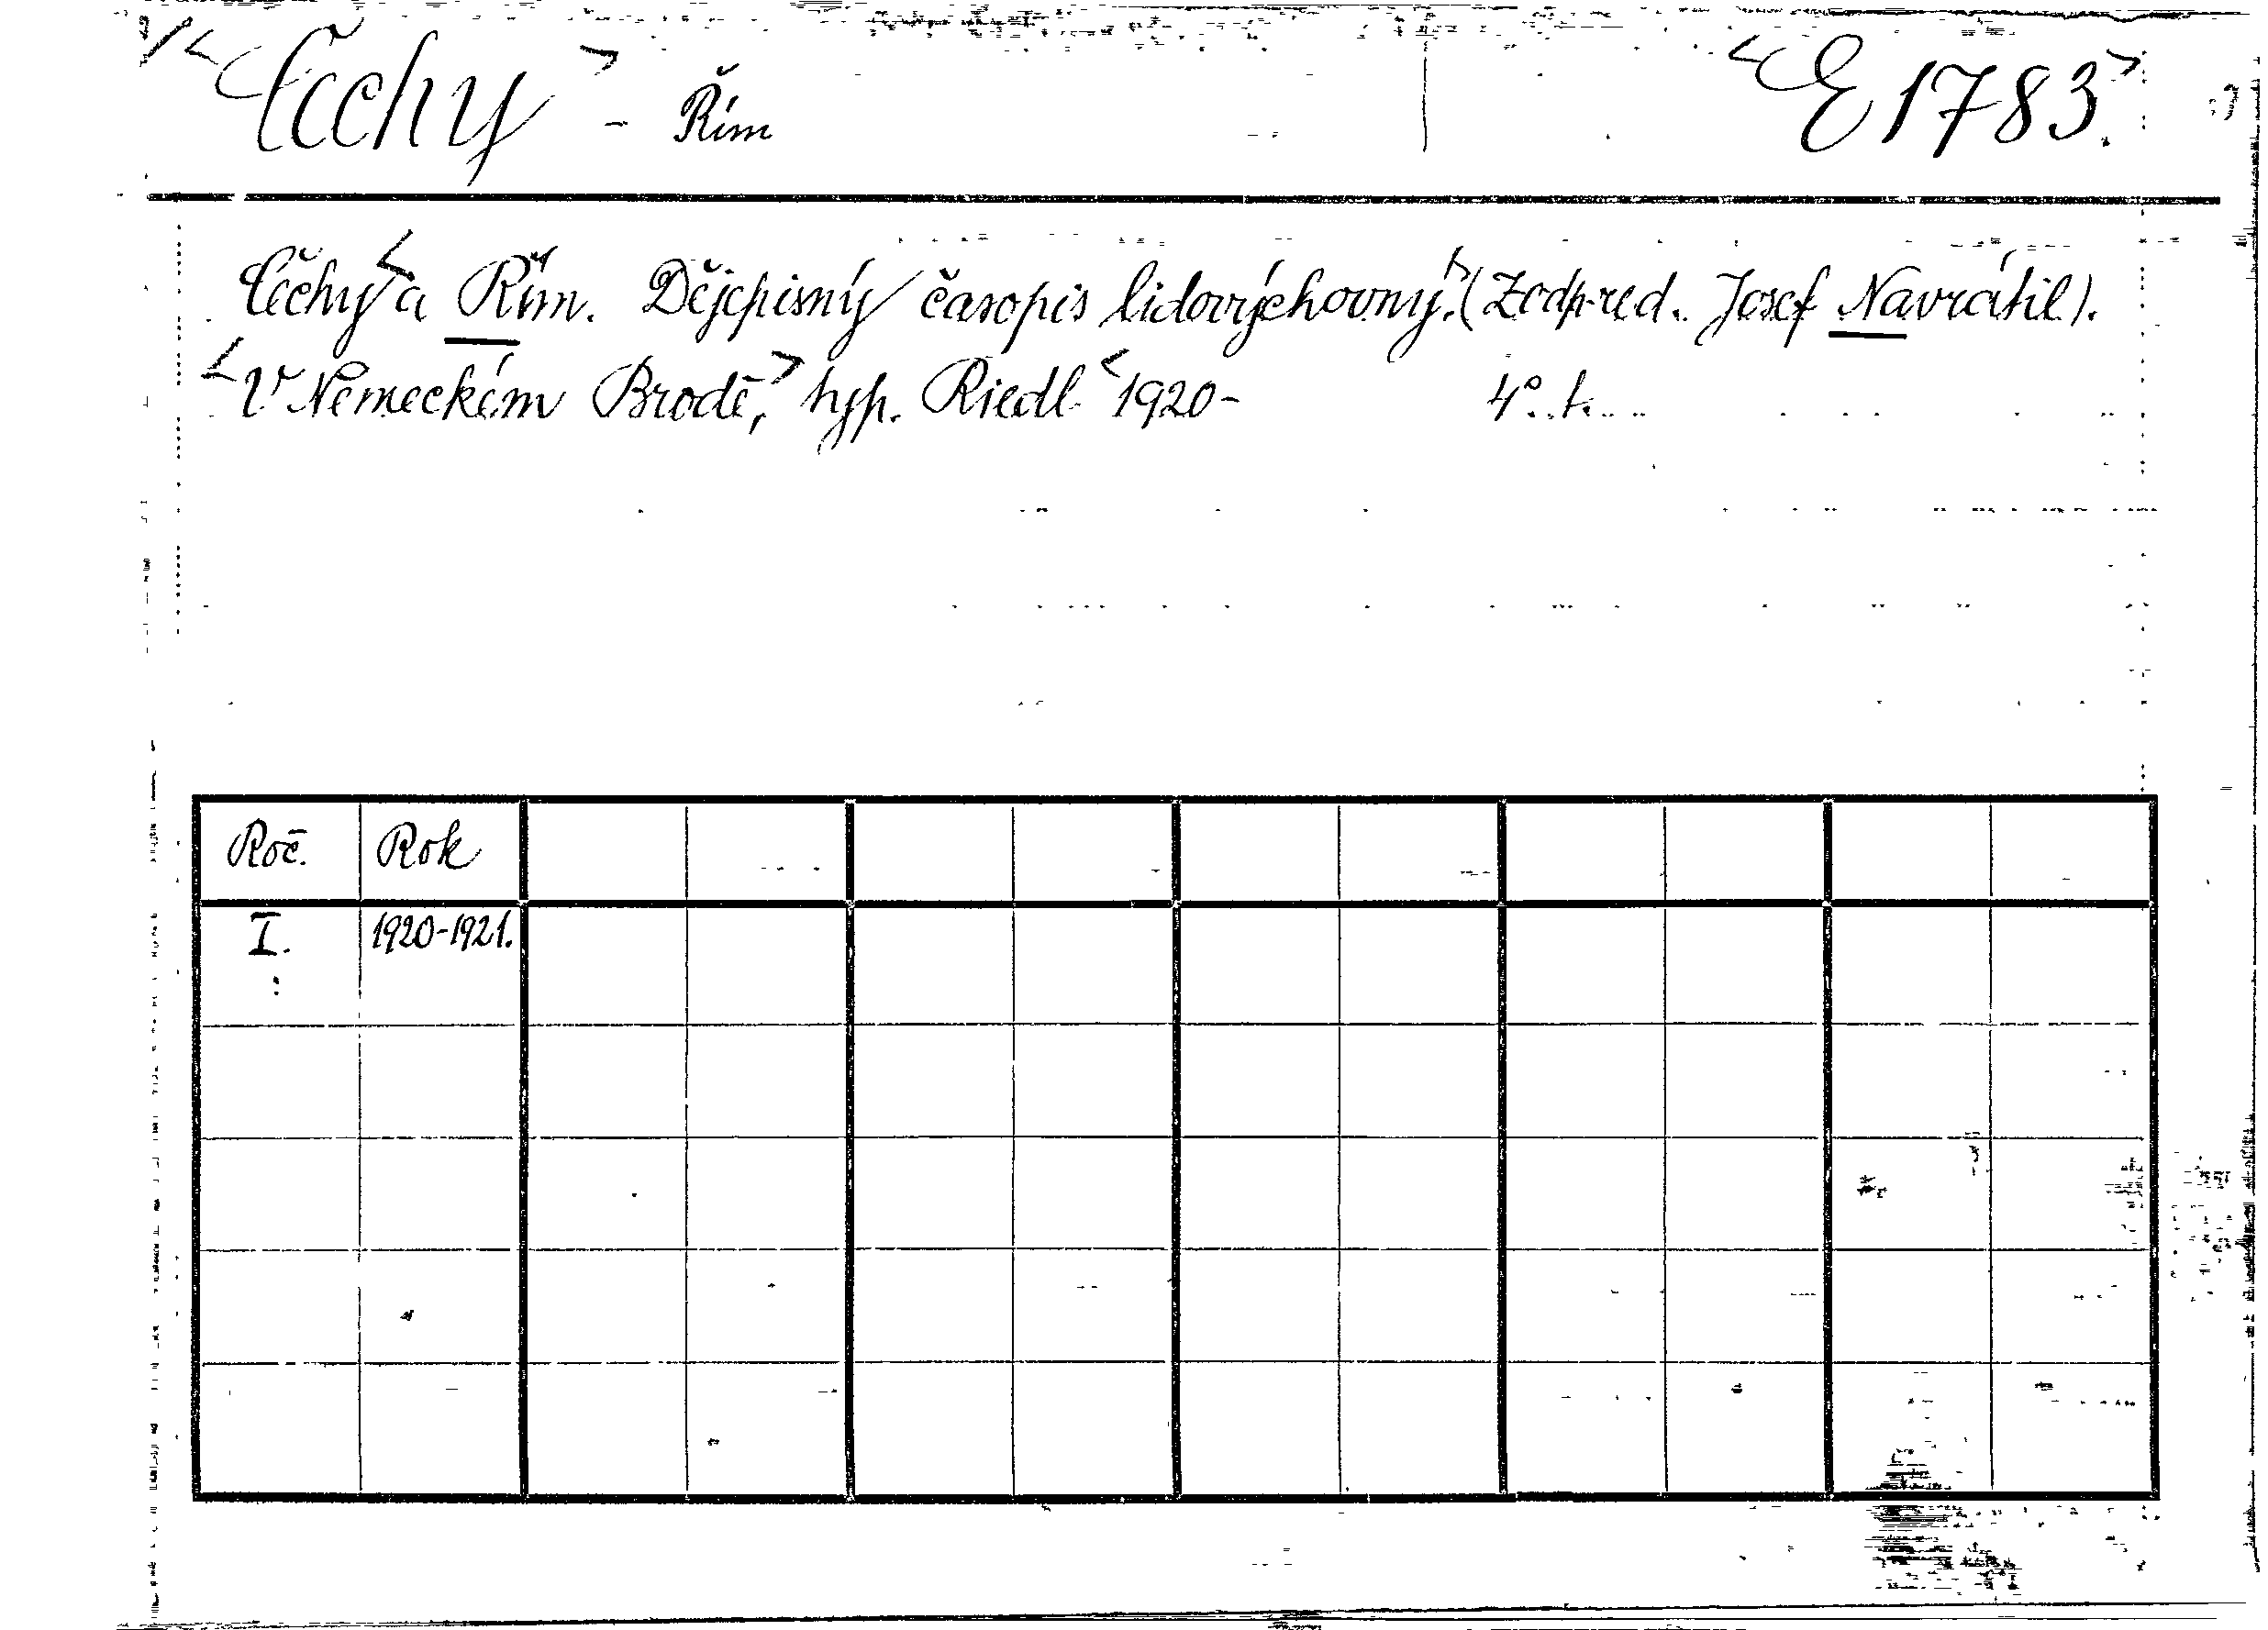 <Čechy> - Řím <E 1783.>
Čechy < a Řím. Dějepisný časopis lidovýchovný.> (Zodp. red. Josef Navrátil).
<V Německém Brodě,> typ. Riedl <1920- 4°. t.
Roč. Rok
I. 1920-1921.
: